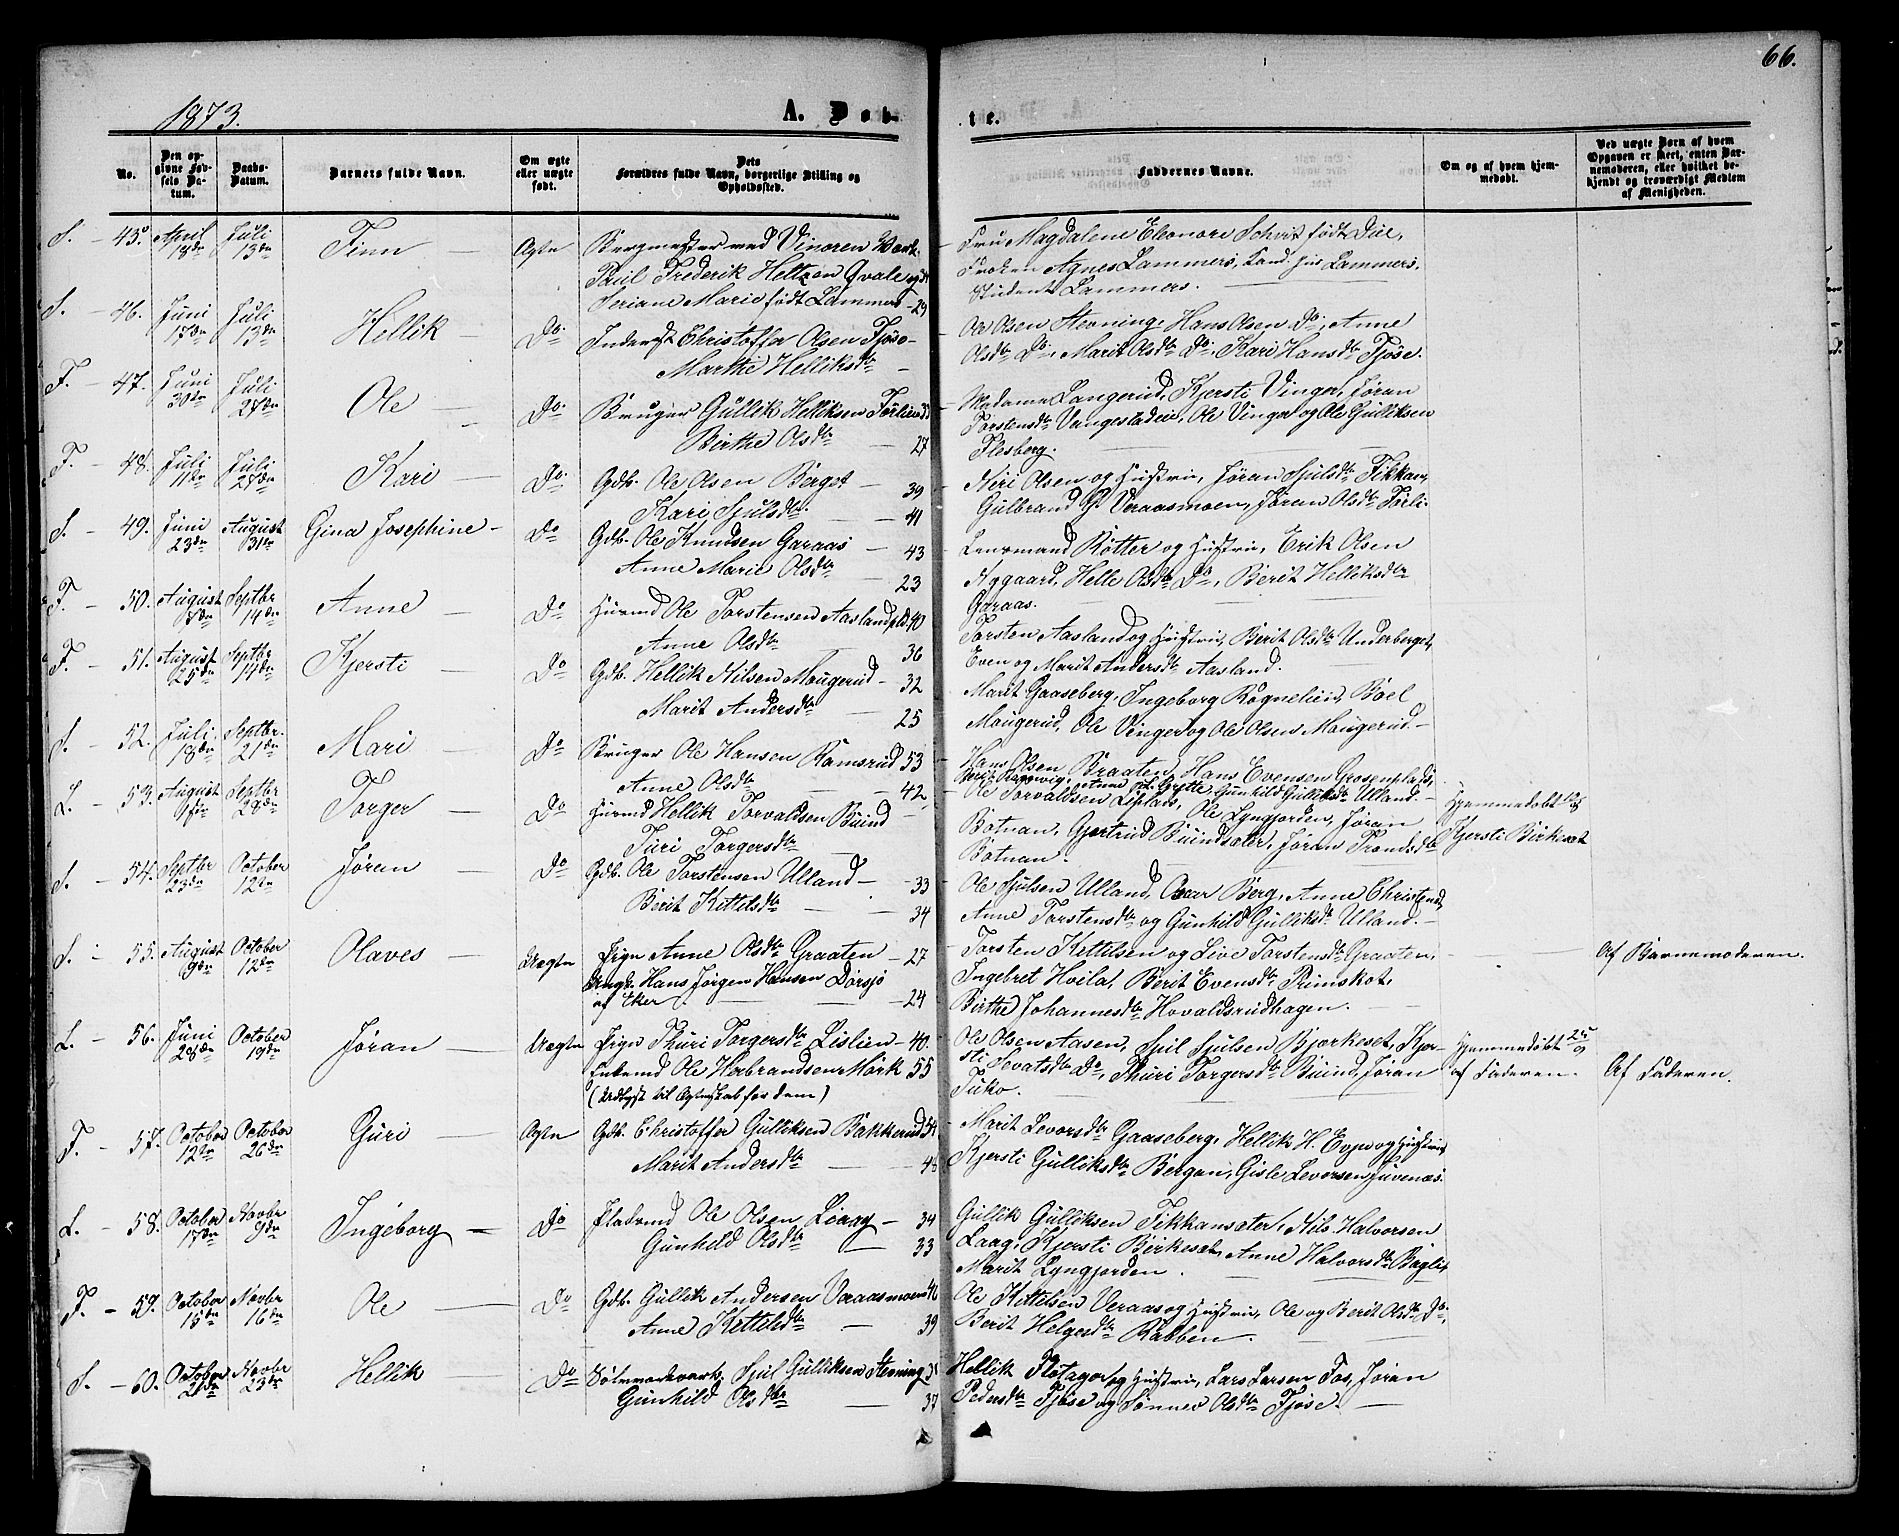 66.
1873.
A. Døb-
te.
No.
Den op-
givne Fød-
sels Da-
tum.
Daabs-
Datum.
Barnets fulde Navn.
Om ægte
eller uægte
født.
Dets
Forældres fulde Navn, borgerlige Stilling og
Opholdssted.
Faddernes Navne.
Om og af hvem hjem-
medøbt.
Ved uægte Børn af hvem
Opgaven er skeet, enten Bar-
nemoderen, eller hvilket be-
kjendt og troværdigt Medlem
af Menigheden.
S. - 45. April 18de Juli 13de Finn Ægte Bergmester ved Vinoren Værk
Paul Frederik Heltzen Qvale og
Seriane Marie født Lammers - 29
Fru Magdalene Eleonore født Due,
Frøken Agnes Lammers, Lammers,
Student Lammers.
S. - 46. Juni 17de Juli 13de Hellik Do Inderst Christoffer Olsen Fjøse -
Marthe Helliksdtr -
Ole Olsen Stevning, Hans Olsen Do, Anne
Olsdtr Do, Marit Olsdtr Do, Kari Hansdtr Fjøse.
F. - 47. Juni 30te Juli 27de Ole Do Bruger Gullik Helliksen Førlien
Birthe Olsdtr - 27
Madame Langerud, Kjersti Vinger, Jøran
Torstensdtr Vangestadeie, Ole Vinger og Ole Gulliksen
Flesberg.
F. - 48. Juli 11te Juli 27de Kari Do Gdb. Ole Olsen Berget - 39
Kari Sjulsdtr. - 41
Niri Olsen og Hustru, Jøran Sjulsdtr Fikkan,
Gulbrand G. Veraasmoen, Jøran Olsdtr Førli.
S. - 49. Juni 23de August 31te Gina Josephine - Do Gdb. Ole Knudsen Garaas - 43
Anne Marie Olsdtr - 23
Lensmand Røtter og Hustru, Erik Olsen
Nygaard, Helle Olsdtr Do, Berit Helliksdtr
Garaas.
F. - 50. August Septbr 14de Anne Do Huusmd Ole Torstensen Aasland 40
Anne Olsdtr 36
Torsten Aasland og Hustru, Berit Olsdtr Underberget,
Even og Marit Andersdtr Aasland.
F. - 51. August 25de Septbr 14de Kjersti Do Gdb. Hellik Nilsen Maugerud - 32
Marit Andersdtr - 25
Marit Gaaseberg, Ingeborg Rognelien, Boel
Maugerud, Ole Vinger og Ole Olsen Maugerud. -
S. - 52. Juli 18de Septbr. 21de Mari Do Bruger Ole Hansen Ramsrud 53
Anne Olsdtr - 42
Hans Olsen Braaten, Hans Evensen Grosenplads,
Gunhild Gulliksdtr Ulland. -
L. - 53. August 9de Septbr 28de Torger Do Huusmd Hellik Torvaldsen Buind -
Turi Torgersdtr
Ole Torvaldsen Liplads, Ole Lyngjorden, Jøran
Botnan, Gjertrud Buindsæter, Jøran Trondsdtr
Botnan.
Hjemmedøbt
Kjersti Birkeset
S. - 54. Septbr 23de October 12te Jøran Do Gdb. Ole Torstensen Ulland - 33
Berit Kittilsdtr - 34
Ole Sjulsen Ulland, Berg, Anne
Anne Torstensdtr og Gunhild Gulliksdtr Ulland. -
S. - 55. August 9de October 12te Olaves Uægte Pigen Anne Olsdtr Graaten - 27
Ungk. Hans Jørgen Hansen Dørsjø
af Eker. - 24
Torsten Kittilsen og Live Torstensdtr Graaten,
Ingebret Hvila, Berit Evensdtr Primskot,
Birthe Johannesdtr Hovaldsrudhagen.
Af Barnemoderen.
L. - 56. Juni 28de October 19de Jøran Uægte Pigen Thuri Torgersdtr Lislien - 40.
Enkemd Ole Herbrandsen Mørk 55
(Udlyst til Ægteskab for dem)
Ole Olsen Aasen, Spil Sjulsen Bjørkeset, Kjer-
sti Sevatsdtr Do, Thuri Torgersdtr Buind, Jøran
Juko.
Hjemmedøbt
af Faderen.
Af Faderen.
F. - 57. October 12te October 26de Guri Ægte Gdb. Christoffer Gulliksen Bakkerud 54
Marit Andersdtr - 48
Marit Levorsdtr Gaaseberg, Hellik H. Evju og Hustru
Kjersti Gulliksdtr Bergan, Gisle Levorsen Juvenæs.
L. - 58. October 17de Novbr 9de Ingeborg Do Pladsmd Ole Olsen Laag - 34
Gunhild Olsdtr - 33
Gullik Gulliksen Fikkansæter, Nils Halvorsen
Laag, Kjersti Birkeset, Anne Halvorsdtr Baglie
Marit Lyngjorden.
F. - 59. October 15de Novbr 16de Ole Do Gdb. Gullik Andersen Veraasmoen 46
Anne Kittilsdtr - 39
Ole Kittilsen Veraas og Hustru, Ole og Berit Olsdtr Do,
Berit Helgesdtr Rabben.
S. - 60. October 21de Novbr 23de Hellik Do Sølvværksarb. Sjul Gulliksen Stevning 35
Gunhild Olsdtr - 37
Hellik Flotager og Hustru, Lars Larsen Fos, Jøran
Pedersdtr Fjøse og Sønnev Olsdtr Fjøse. -